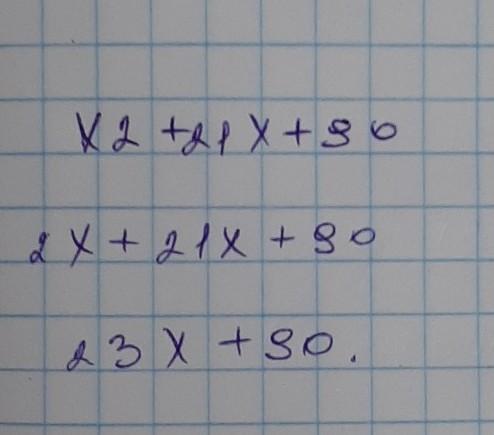 x2 + 21x + 90
2x + 21x + 90
23x + 90.